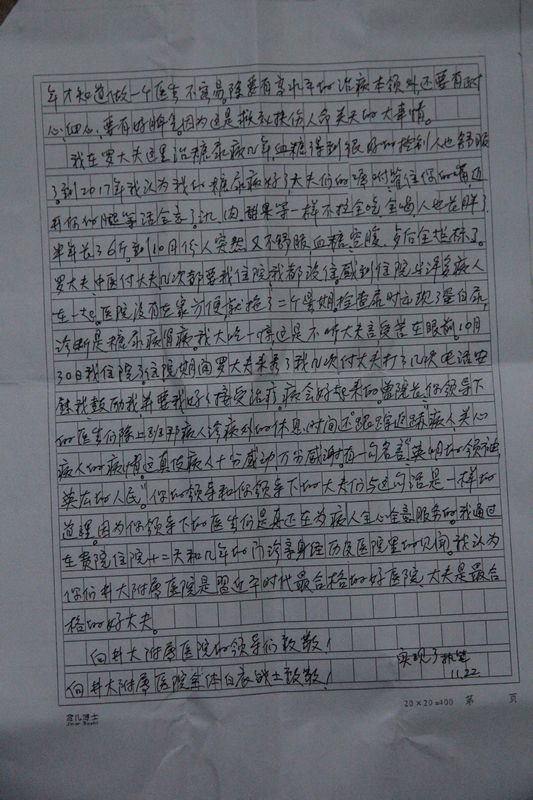 年才知道做一个医生不容易,除要有高水平的治病本领外,还要有耐
心,细心,要有好脾气。因为这是救死扶伤人命关天的大事情。
我在罗大夫这里治糖尿病几年,血糖得到很好的控制人也舒服
了。到2017年我认为我的糖尿病好了大夫们的嘱咐管住你的嘴,迈
开你的腿等话全忘了。
半年长了6斤到10月份人突然又不舒服,血糖空腹,餐后全超标了。
罗大夫,付大夫几次都要我住院,我都没住。感到住院
在一起。医院没有在家方便就拖了二个星期,检查尿时出现了蛋白尿,
诊断是糖尿病肾病,我大吃一惊。这是不听大夫言,吃苦在眼前。10月
30日我住院了。住院期间罗大夫来看了我几次付大夫打了几次电话安
慰我,鼓励我,并要我好好接受治疗,病会好起来的。贵院在你领导下
的医生们除上班那病人诊疾外的休息时间还"跟踪追踪"病人关心
病人的病情。这真使病人十分感动,万分感谢。有一句名言"英明的领袖
英雄的人民。"你的领导和你领导下的大夫们与这句话是一样的
道理。因为你领导下的医生们是真正在为病人全心全意服务的。我通过
在贵院住院十二天和几年的门诊亲身经历及医院里的见闻。我认为
你们井大附属医院是习近平时代最合格的好医院,大夫是最合
格的好大夫。
向井大附属医院的领导们致敬!
向井大附属医院全体白衣战士致敬!
11.22
金儿博士
20×20=400 第 页